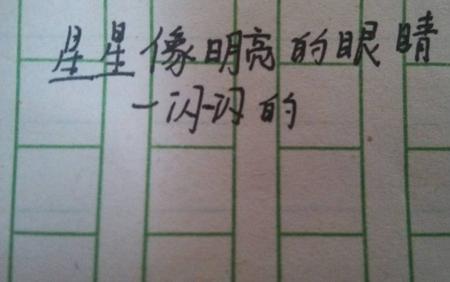 星星像明亮的眼睛
一闪一闪的